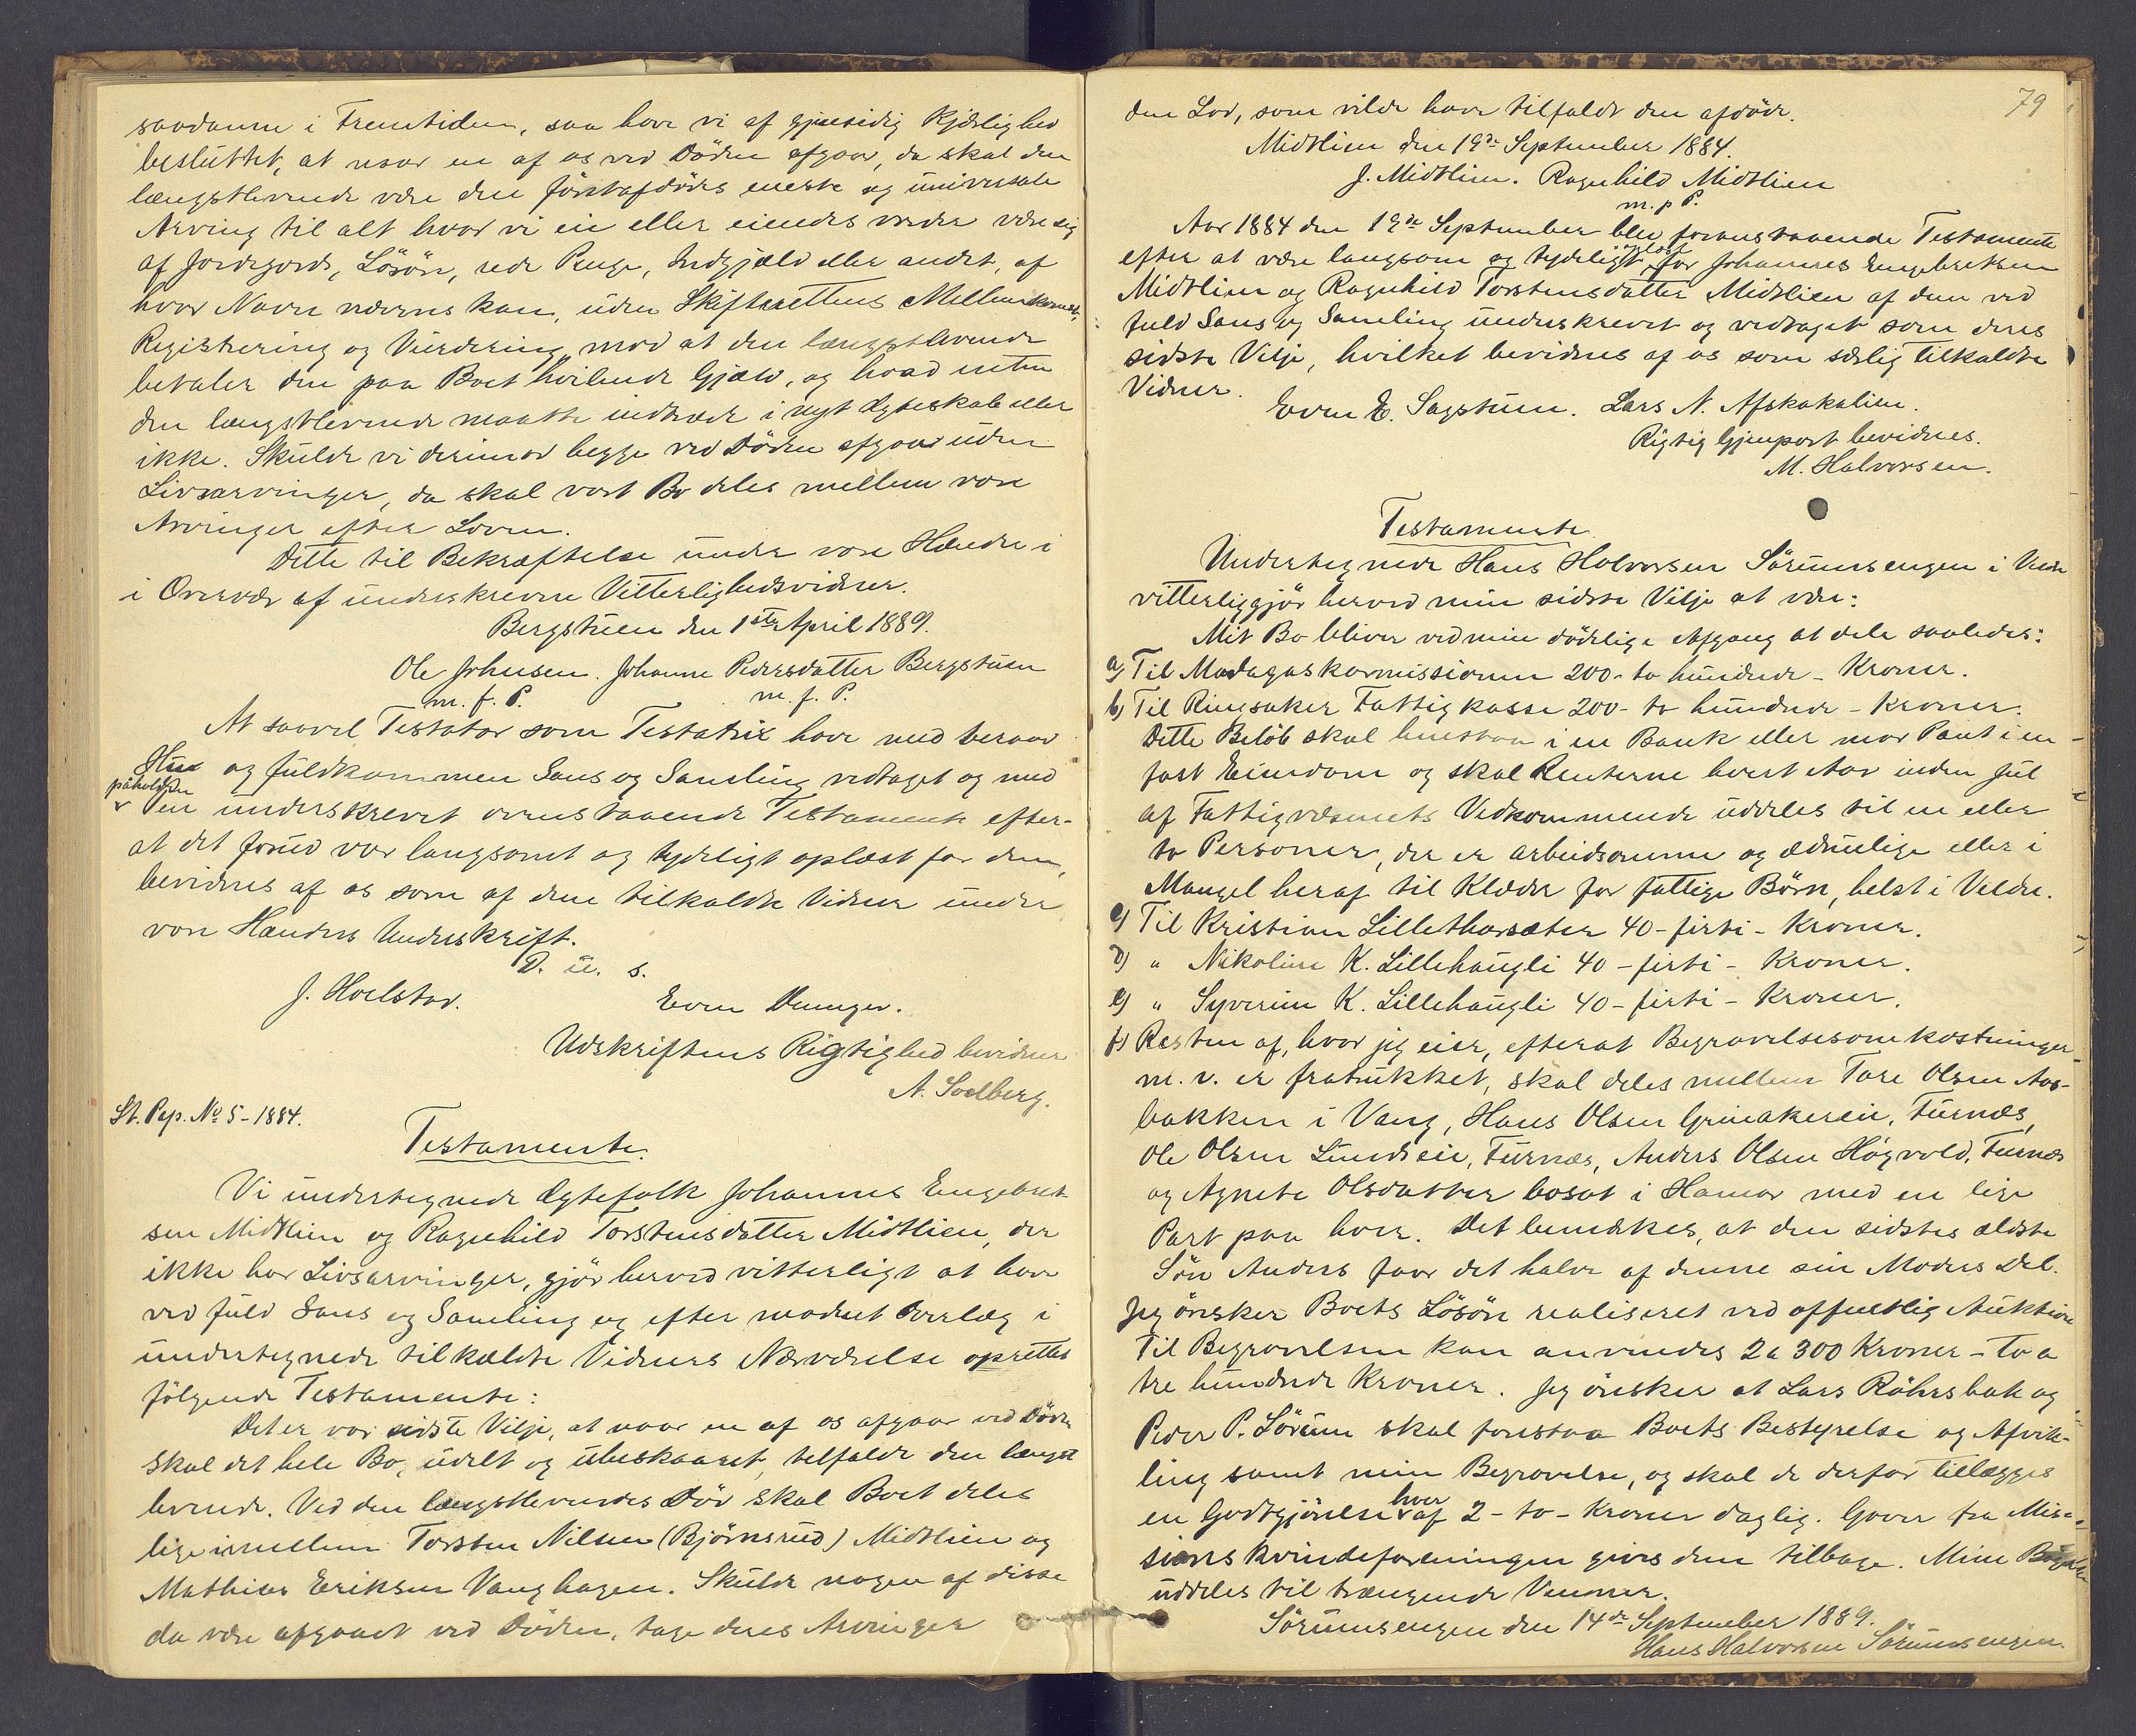 saadanne i Fremtiden, saa have vi af gjensidig Kjærlighed
besluttet, at naar en af os ved Döden afgaar, da skal den
længstlevende være den förstafdödes eneste og universale
Arving til alt hvad vi eie eller eiendes vorder være sig
af Jordegods, Lösöre, rede Penge, Indgjæld eller andet, af
hvad Navn nævnes kan, uden Skifterettens Mellemkomst,
Registrering og Vurdering, mod at den længstlevende
betaler den paa Boet hvilende Gjæld, og hvad enten
den længstlevende maatte indtræde i nyt Ægteskab eller
ikke. Skulde vi derimod begge ved Döden afgaa uden
Livsarvinger, da skal vort Bo deles mellem vore
Arvinger efter Loven.
Dette til Bekræftelse under vore Hænder i
i Overvær af underskrevne Vitterlighedsvidner.
Bergstuen den 1ste April 1889.
Ole Johnsen. Johanne Pedersdatter Bergstuen
m. f. P. m. f. P.
At saavel Testator som Testatrix have med beraad
Hu og fuldkommen Sans og Samling vedtaget og med
paaholden
Pen underskrevet ovenstaaende Testamente efter-
at det forud var langsomt og tydeligt oplæst for dem,
bevidnes af os som af dem tilkaldte Vidner under
vore Hænders Underskrift.
D. u. s.
J. Hoelstad. Even
Udskriftens Rigtighed bevidner
A. Soelberg.
St. Pap. No 5 - 1884.
Testamente.
Vi undertegnede Ægtefolk Johannes Engebret-
sen Midtlien og Ragnhild Torstensdatter Midtlien, der
ikke har Livsarvinger, gjör herved vitterligt at have
ved fuld Sans og Samling og efter modent Overlæg i
undertegnede tilkaldte Vidners Nærværelse oprettet
fölgende Testamente:
Det er vor sidste Vilje, at naar en af os afgaar ved Döden
skal det hele Bo, udelt og ubeskaaret, tilfalde den længst
levende. Ved den længstlevendes Död skal Boet deles
lige imellem Torsten Nilsen (Björnsrud) Midtlien og
Mathias Eriksen Vanghagen. Skulde nogen af disse
da være afgaaet ved Döden, tage deres Arvinger
79
den Lod, som vilde have tilfaldt den afdöde.
Midtlien den 19de September 1884.
J. Midtlien. Ragnhild Midtlien
m. p P.
Aar 1884 den 19de September blev foranstaaende Testamente
oplæst
efter at være langsom og tydeligt for Johannes Engebretsen
Midtlien og Ragnhild Torstensdatter Midtlien af dem ved
fuld Sans og Samling underskrevet og vedtaget som deres
sidste Vilje, hvilket bevidnes af os som særlig tilkaldte
Vidner.
Even E. Sagstuen. Lars N. Afskakalien.
Rigtig Gjenpart bevidnes.
M. Halvorsen.
Testamente
Undertegnede Hans Halvorsen Sörumsengen i Veldre
vitterliggjör herved min sidste Vilje at være:
Mit Bo bliver ved min dödelige Afgang at dele saaledes:
a) Til Madagaskarmissionen 200 - to hundrede - Kroner.
b) Til Ringsaker Fattigkasse 200 - to hundrede - Kroner.
Dette Belöb skal henstaa i en Bank eller mod Pant i en
fast Eiendom og skal Renterne hvert Aar inden Jul
af Fattigvæsenets Vedkommende uddeles til en eller
to Personer, der er arbeidsomme og ædruelige eller i
Mangel heraf til Klæder for fattige Börn, helst i Veldre.
c) Til Kristian Lillethorsæter 40 - firti - Kroner.
d) " Nikoline K. Lillehaugli 40 - firti - Kroner.
e) " Syverine K. Lillehaugli 40 - firti - Kroner.
f) Resten af, hvad jeg eier, efterat Begravelsesomkostninger
m. v. er fratrukket, skal deles mellem Tore Olsen Aas-
bakken i Vang, Hans Olsen Grinakereie, Furnæs,
Ole Olsen Lundseie, Furnæs, Anders Olsen Högvold, Furnæs
og Agnete Olsdatter bosat i Hamar med en lige
Part paa hver. Det bemærkes, at den sidstes ældste
Sön Anders faar det halve af denne sin Moders Del.
Jeg önsker Boets Lösöre realiseret ved offentlig Auktion
Til Begravelsen kan anvendes 2 a 300 Kroner - to a
tre hundrede Kroner. Jeg önsker at Lars Röhrsbak og
Peder P. Sörum skal forestaa Boets Bestyrelse og Afvik-
ling samt min Begravelse, og skal de derfor tillægges
hver
en Godtgjörelse af 2 - to - Kroner daglig. Gaver fra Mis-
sionskvindeforeningen gives dem tilbage. Mine Böger
uddeles til trængende Venner.
Sörumsengen den 14de September 1889.
Hans Halvorsen Sörumsengen.